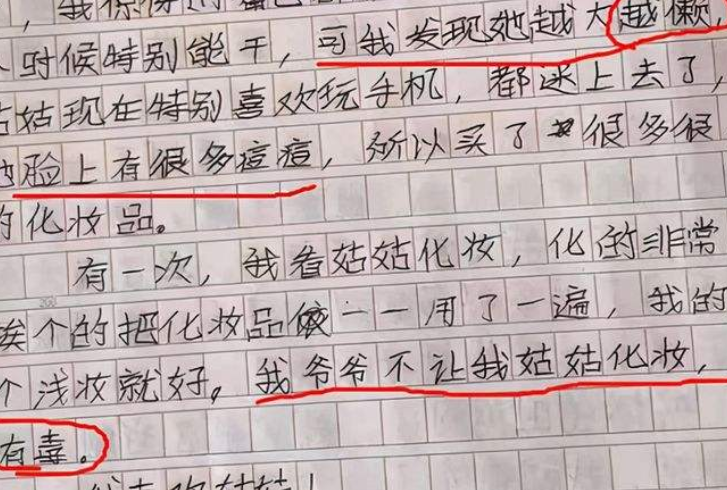 ，我
时候特别能干，可我发现她越大越懒，
姑姑现在特别喜欢玩手机，都迷上去了，
脸上有很多痘痘，所以买了很多很
的化妆品。
有一次，我看姑姑化妆，化的非常
挨个的把化妆品一一用了一遍，我的
个浅妆就好。我爷爷不让我姑姑化妆，
有毒。